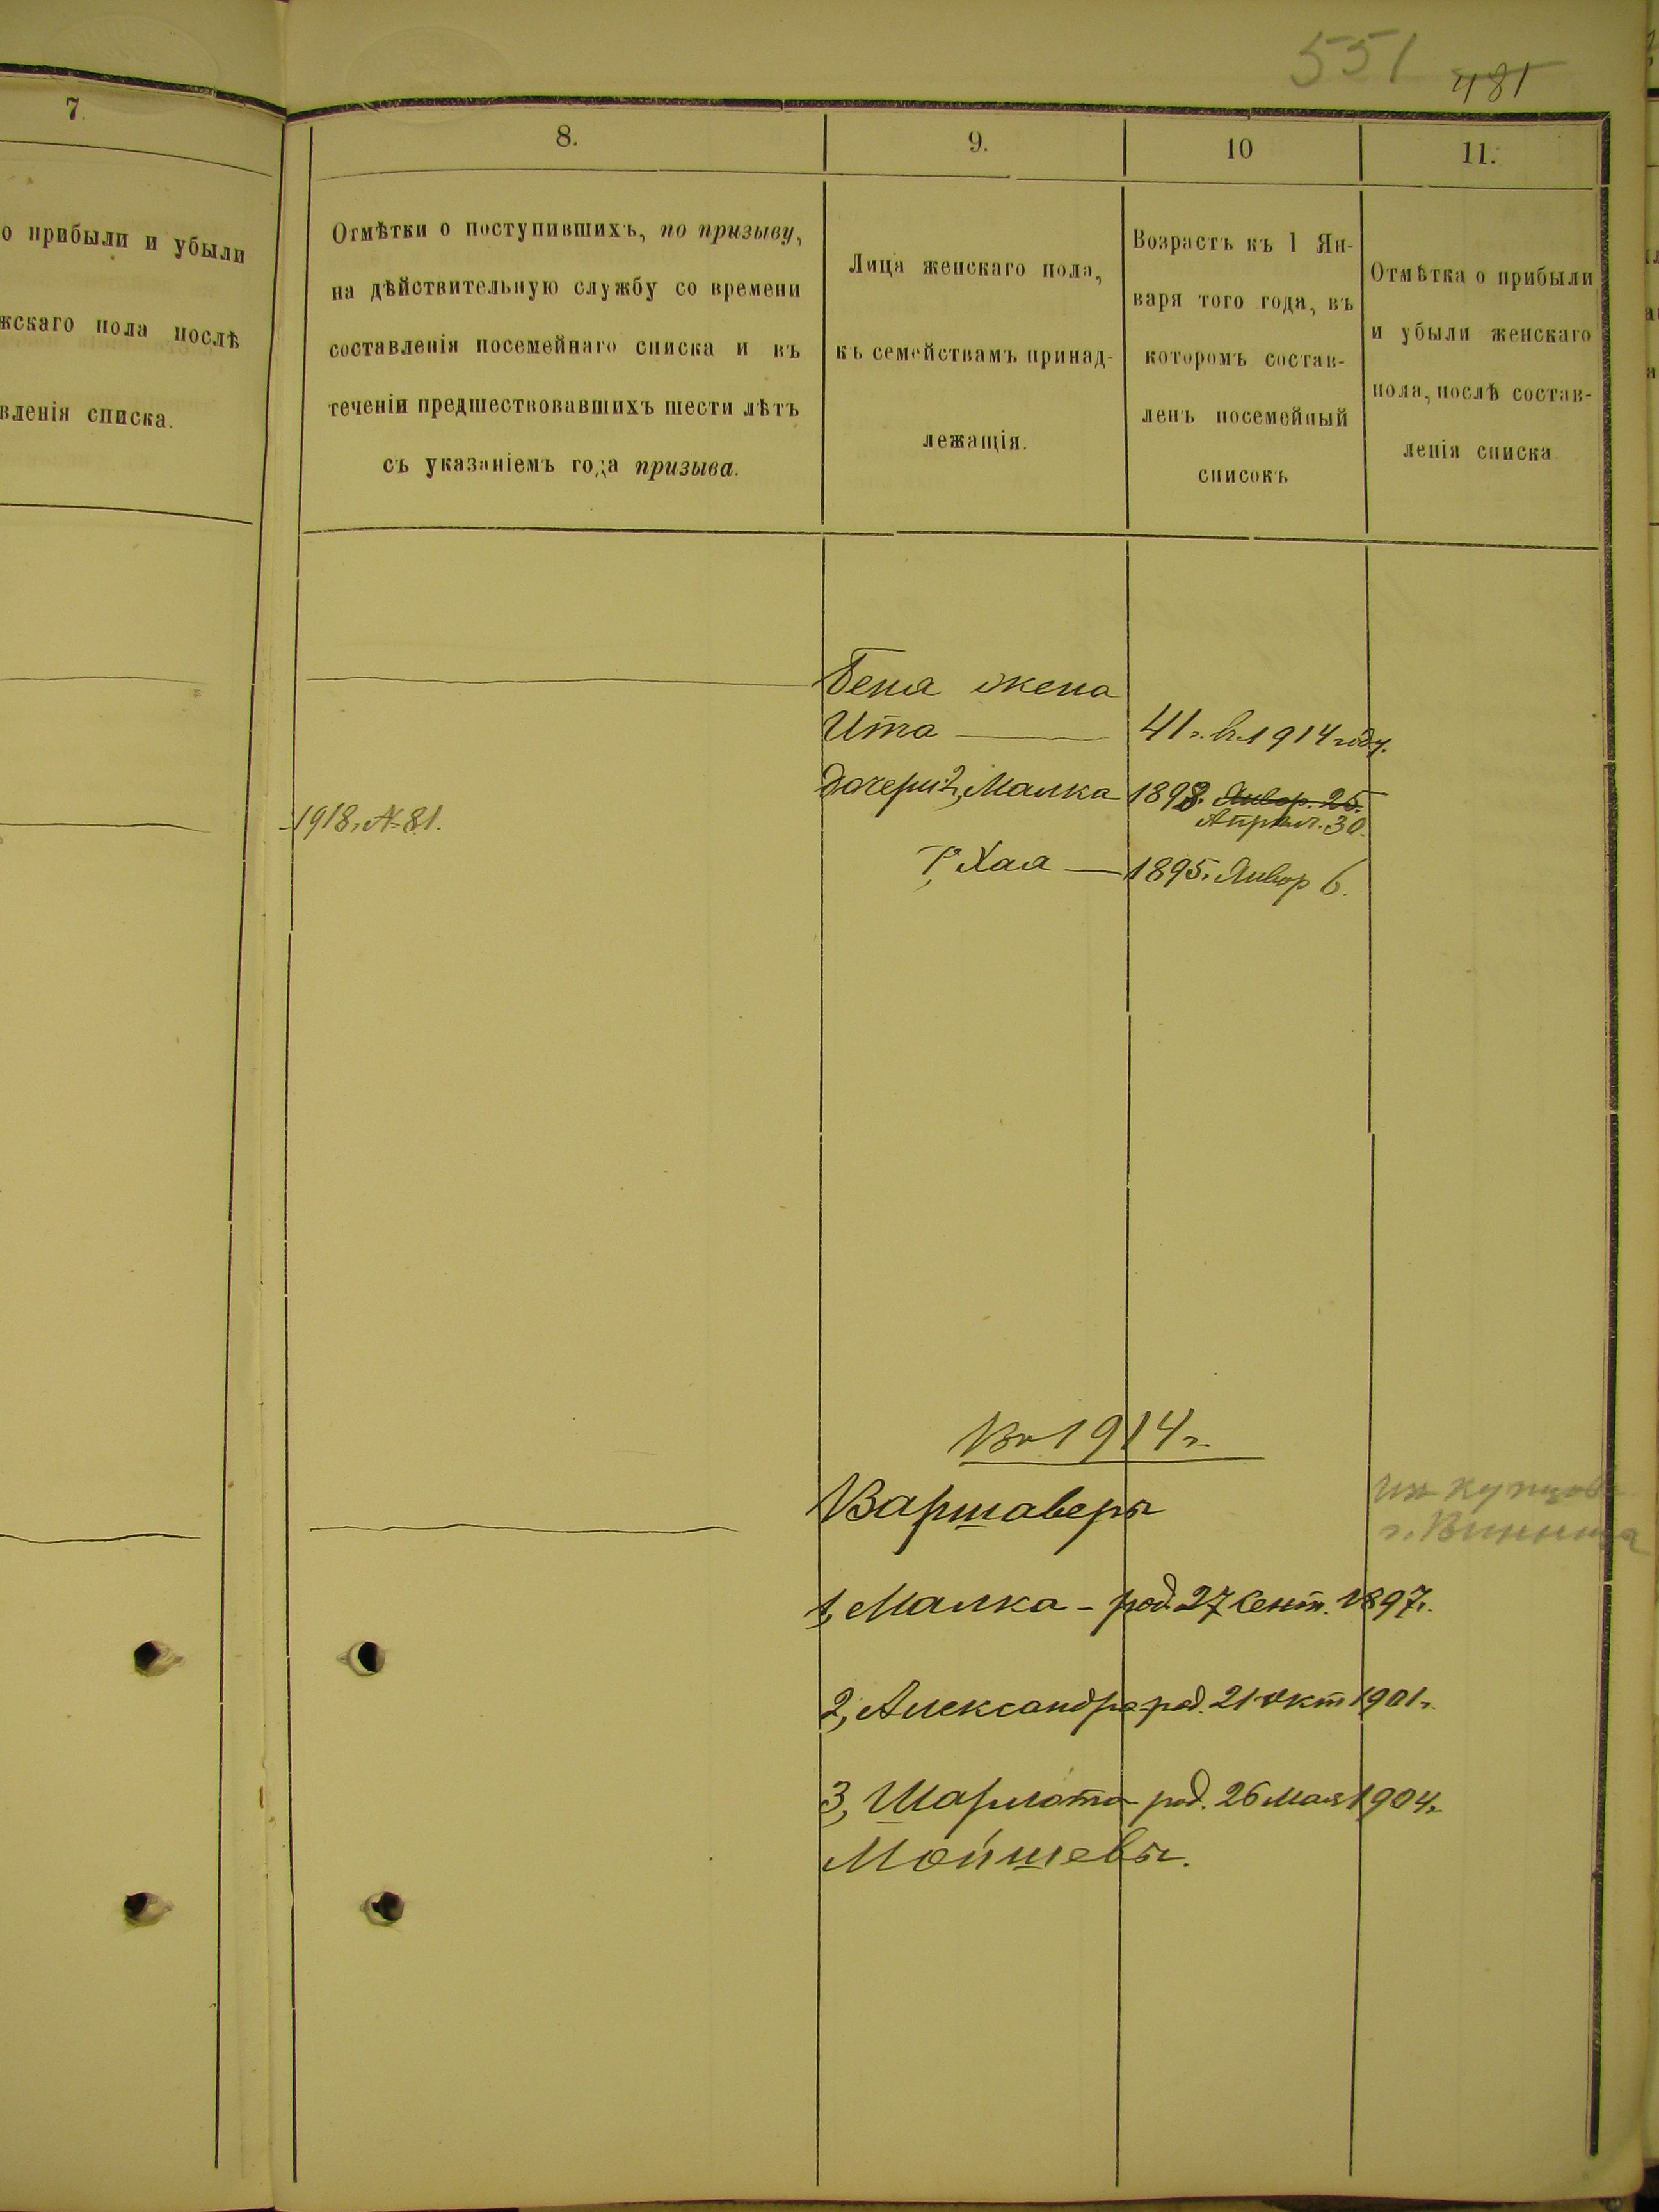 551 481
7.
о прибыли и убыли
жскаго пола послѣ
вленія списка.
8.
Отмѣтки о поступившихъ, по призыву,
на дѣйствительную службу со времени
составленія посемейнаго списка и въ
теченіи предшествовавшихъ шести лѣтъ
съ указаніемъ года призыва.
9.
Лица женскаго пола,
къ семействамъ принад-
лежащія.
10
Возрастъ къ 1 Ян-
варя того года, въ
которомъ состав-
ленъ посемейный
списокъ
11.
Отмѣтка о прибыли
и убыли женскаго
пола, послѣ состав-
ленія списка
жена
Ита — 41 г. въ 1914 году.
дочери: 2, Малка 1898. Январ. 25.
Апрѣл. 30.
1918 г. № 81.
1, Хая — 1895 г. Январ 6.
Въ 1914 г.
Варшаверы
Изъ купцовъ
г. Винница
1, Малка - род. 27 Сент. 1897 г.
2, Александра род. 21 окт 1901 г.
3, Шарлота род. 26 мая 1904 г.
Мойшевы.